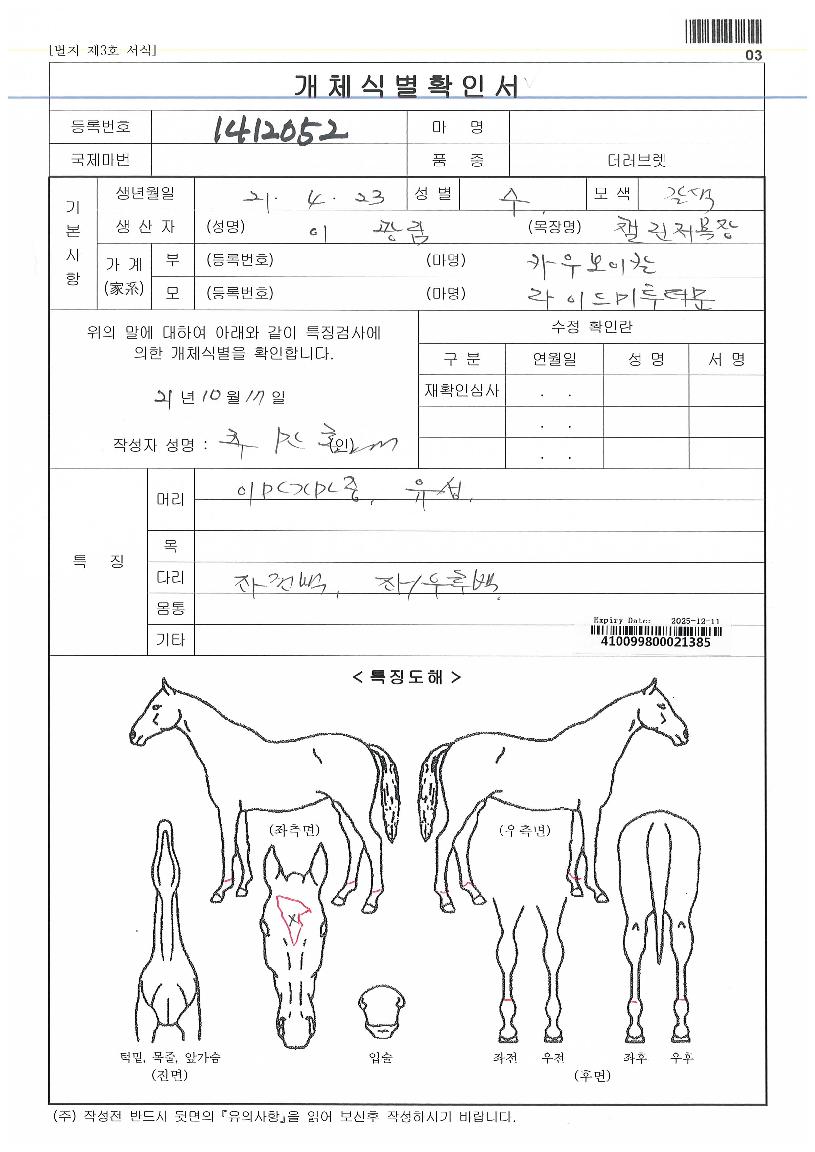 [별지 제3호 서식]
03
개체식별확인서
등록번호 1412052 마 명
국제마번 품 종 더러브렛
기본사항
생년월일 21. 4. 23 성별 수 모색 갈색
생산자 (성명) 이 광림 (목장명) 챌린저목장
가계(家系) 부 (등록번호) (마명) 카우보이칼
모 (등록번호) (마명) 라이드미투더문
위의 말에 대하여 아래와 같이 특징검사에
의한 개체식별을 확인합니다.
21년 10월 17일
작성자 성명 : (인)
수정 확인란
구분 연월일 성명 서명
재확인심사 . .
. .
. .
특 징
머리 유성.
목
다리 좌전백, 좌/우후백.
몸통
기타
Expiry Date: 2025-12-11
410099800021385
< 특징도해 >
(좌측면) (우측면)
턱밑, 목줄, 앞가슴
(전면)
입술
좌전 우전 좌후 우후
(후면)
(주) 작성전 반드시 뒷면의 『유의사항』을 읽어 보신후 작성하시기 바랍니다.